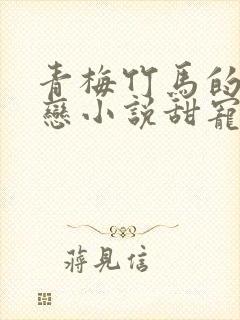 青梅竹馬的
戀小說甜寵
蔣見信